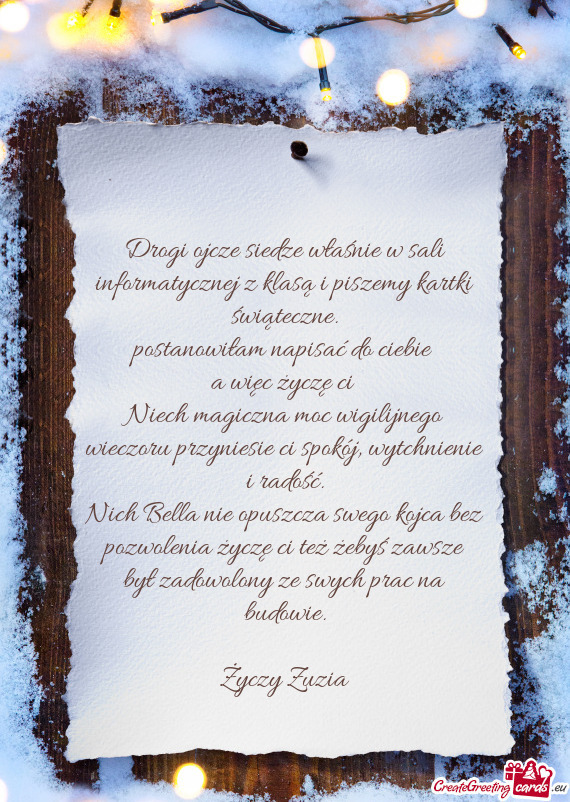 Drogi ojcze siedze właśnie w sali
informatycznej z klasą i piszemy kartki
świąteczne.
postanowiłam napisać do ciebie
a więc życzę ci
Niech magiczna moc wigilijnego
wieczoru przyniesie ci spokój, wytchnienie
i radość.
Nich Bella nie opuszcza swego kojca bez
pozwolenia życzę ci też żebyś zawsze
był zadowolony ze swych prac na
budowie.
Życzy Zuzia
CreateGreetingcards.eu